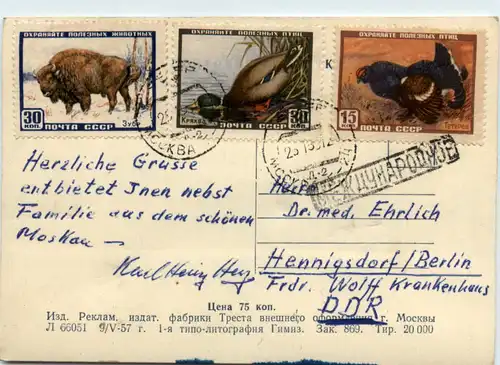 ОХРАНЯЙТЕ ПОЛЕЗНЫХ ЖИВОТНЫХ
ОХРАНЯЙТЕ ПОЛЕЗНЫХ ПТИЦ
ОХРАНЯЙТЕ ПОЛЕЗНЫХ ПТИЦ
30 КОП. ПОЧТА СССР Зубр
Кряква 30 КОП. ПОЧТА СССР
15 КОП. ПОЧТА СССР Тетерев
МОСКВА
МОСКВА
МЕЖДУНАРОДНОЕ
Herzliche Grüsse
entbietet Inen nebst
Familie aus dem schönen
Moskau –
Karl Heinz
Herrn
Dr. med. Ehrlich
Hennigsdorf/Berlin
Frdr. Wolff Krankenhaus
DDR
Цена 75 коп.
Изд. Реклам. издат. фабрики Треста внешнего оформления г. Москвы
Л 66051 9/V-57 г. 1-я типо-литография Гимиз. Зак. 869. Тир. 20 000